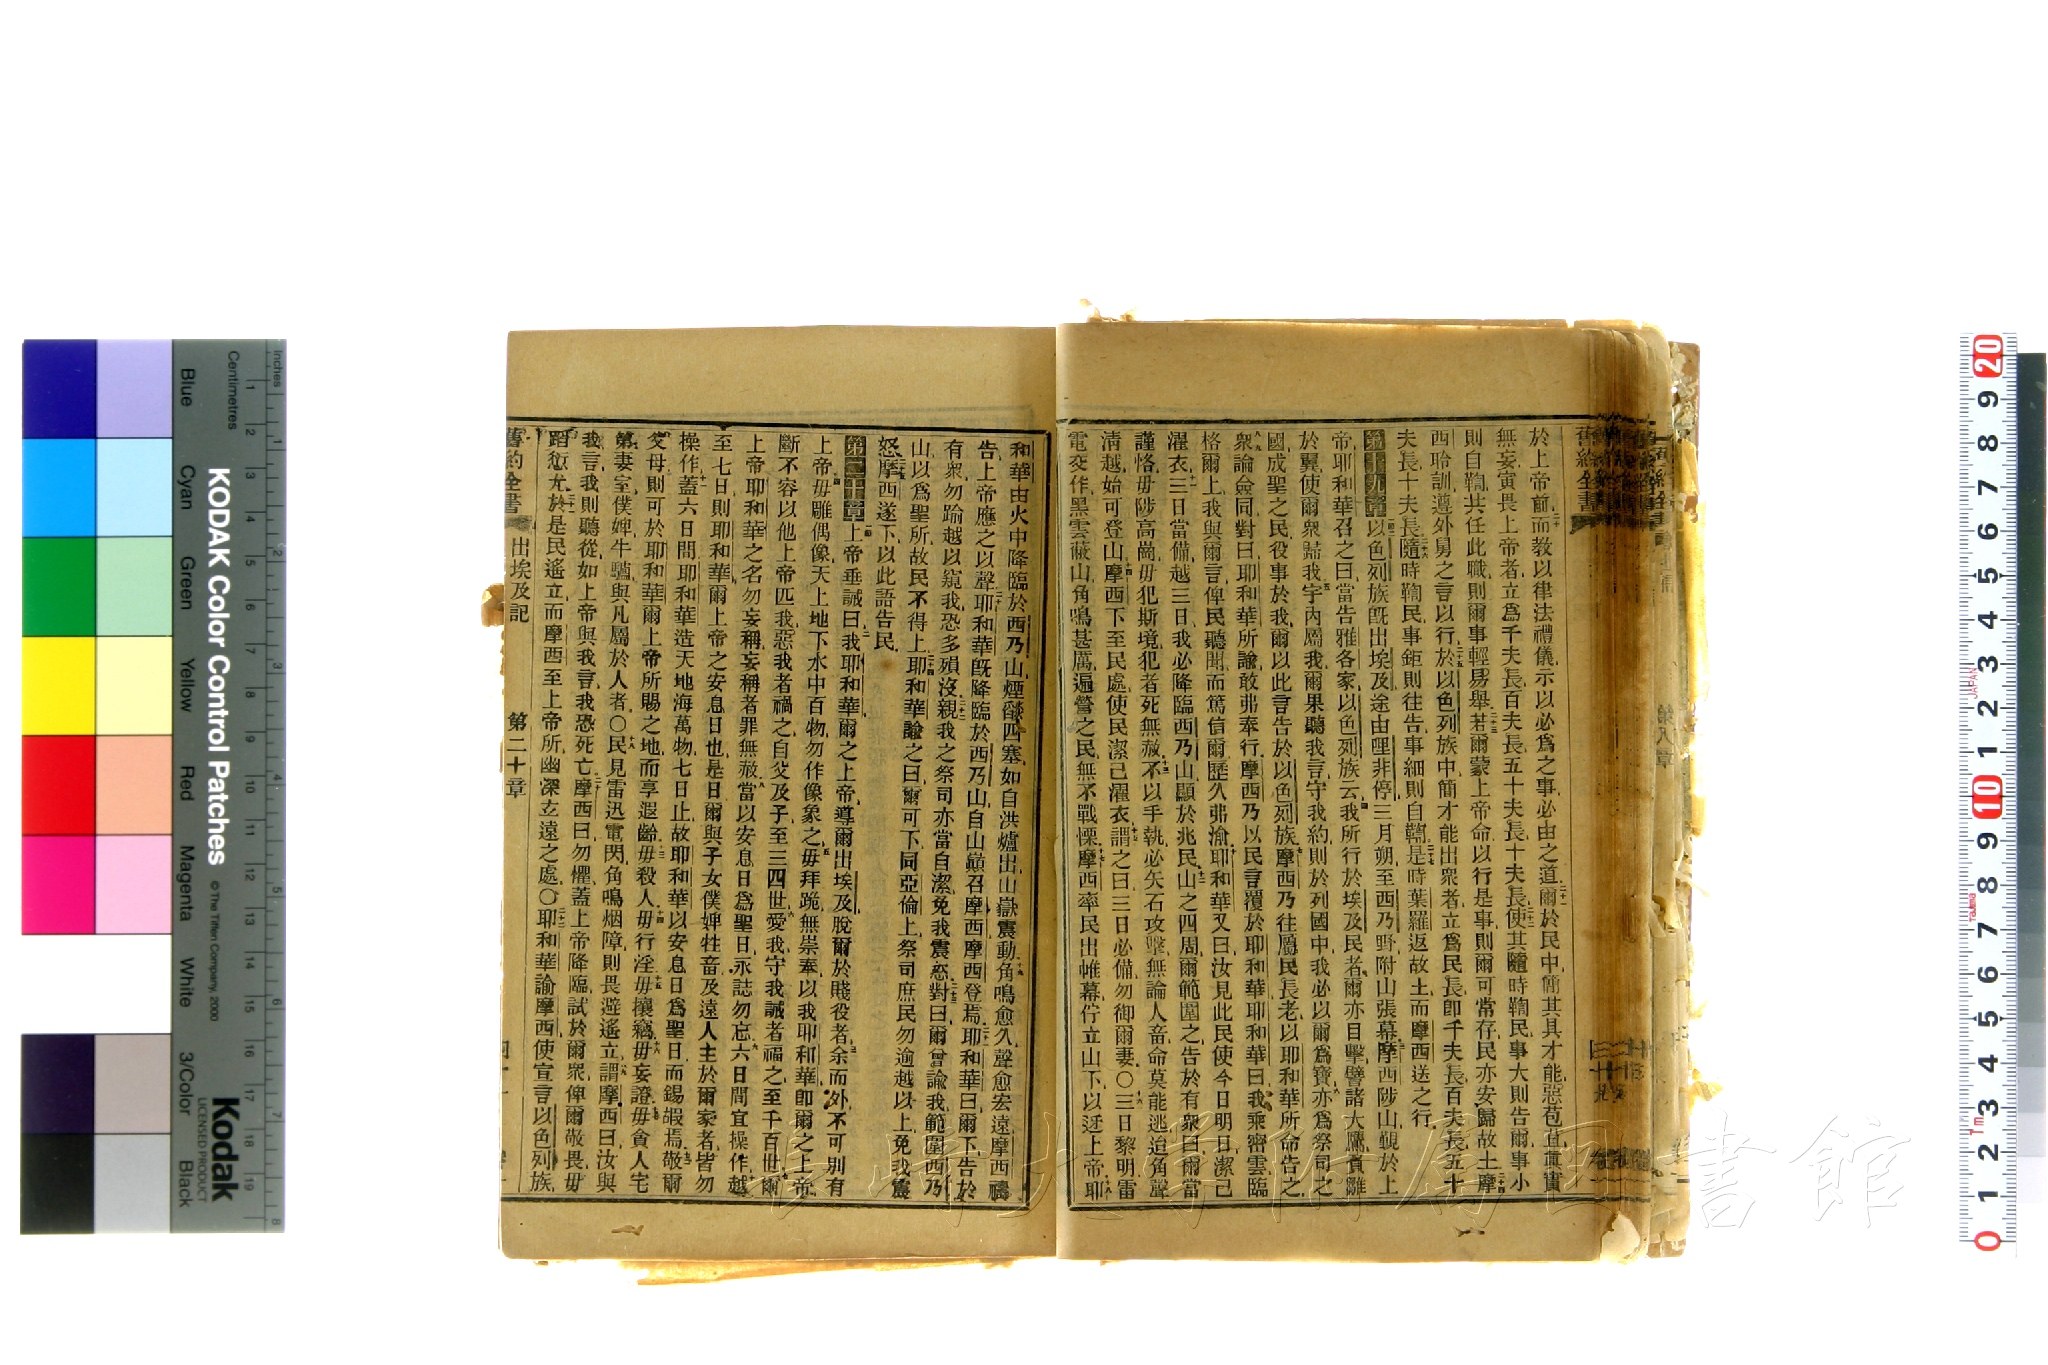 於上帝前而教以律法禮儀示以必爲之事必由之道爾於民中簡其具才能惡苞苴眞實
無妄寅畏上帝者立爲千夫長百夫長五十夫長十夫長使其隨時鞫民事大則告爾事小
則自鞫共任此職則爾事輕易舉若爾蒙上帝命以行是事則爾可常存民亦安歸故土摩
西聆訓遵外舅之言以行於以色列族中簡才能出衆者立爲民長卽千夫長百夫長五十
夫長十夫長隨時鞫民事鉅則往告事細則自鞫是時葉羅返故土而摩西送之行
第十九章以色列族旣出埃及途由哩非停三月朔至西乃野附山張幕摩西陟山覲於上
帝耶和華召之曰當告雅各家以色列族云我所行於埃及民者爾亦目擊譬諸大鷹負雛
於翼使爾衆歸我宇內屬我爾果聽我言守我約則於列國中我必以爾爲寶亦爲祭司之
國成聖之民役事於我爾以此言告於以色列族摩西乃往屬民長老以耶和華所命告之
衆論僉同對曰耶和華所諭敢弗奉行摩西乃以民言覆於耶和華耶和華曰我乘密雲臨
格爾上我與爾言俾民聽聞而篤信爾歷久弗渝耶和華又曰汝見此民使今日明日潔己
濯衣三日當備越三日我必降臨西乃山顯於兆民山之四周爾範圍之告於有衆曰爾當
謹恪毋陟高崗毋犯斯境犯者死無赦不以手執必矢石攻擊無論人畜命莫能逃迨角聲
清越始可登山摩西下至民處使民潔己濯衣謂之曰三日必備勿御爾妻○三日黎明雷
電交作黑雲蔽山角鳴甚厲遍營之民無不戰慄摩西率民出帷幕佇立山下以迓上帝耶
和華由火中降臨於西乃山煙燄四塞如自洪爐出山嶽震動角鳴愈久聲愈宏遠摩西禱
告上帝應之以聲耶和華旣降臨於西乃山自山巔召摩西摩西登焉耶和華曰爾下告於
有衆勿踰越以窺我恐多殞沒親我之祭司亦當自潔免我震怒對曰爾曾諭我範圍西乃
山以爲聖所故民不得上耶和華諭之曰爾可下同亞倫上祭司庶民勿逾越以上免我震
怒摩西遂下以此語告民
第二十章上帝垂誡曰我耶和華爾之上帝導爾出埃及脫爾於賤役者余而外不可別有
上帝毋雕偶像天上地下水中百物勿作像象之毋拜跪無崇奉以我耶和華卽爾之上帝
斷不容以他上帝匹我惡我者禍之自父及子至三四世愛我守我誡者福之至千百世爾
上帝耶和華之名勿妄稱妄稱者罪無赦當以安息日爲聖日永誌勿忘六日間宜操作越
至七日則耶和華爾上帝之安息日也是日爾與子女僕婢牲畜及遠人主於爾家者皆勿
操作蓋六日間耶和華造天地海萬物七日止故耶和華以安息日爲聖日而錫嘏焉敬爾
父母則可於耶和華爾上帝所賜之地而享遐齡毋殺人毋行淫毋攘竊毋妄證毋貪人宅
第妻室僕婢牛驢與凡屬於人者○民見雷迅電閃角鳴烟障則畏避遙立謂摩西曰汝與
我言我則聽從如上帝與我言我恐死亡摩西曰勿懼蓋上帝降臨試於爾衆俾爾敬畏毋
蹈愆尤於是民遙立而摩西至上帝所幽深玄遠之處○耶和華諭摩西使宣言以色列族
舊約全書 出埃及記 第二十章
舊約全書
KODAK Color Control Patches
© The Tiffen Company, 2000
Kodak
LICENSED PRODUCT
Blue Cyan Green Yellow Red Magenta White 3/Color Black
Inches
Centimetres
長崎大学附属図書館
JAPAN